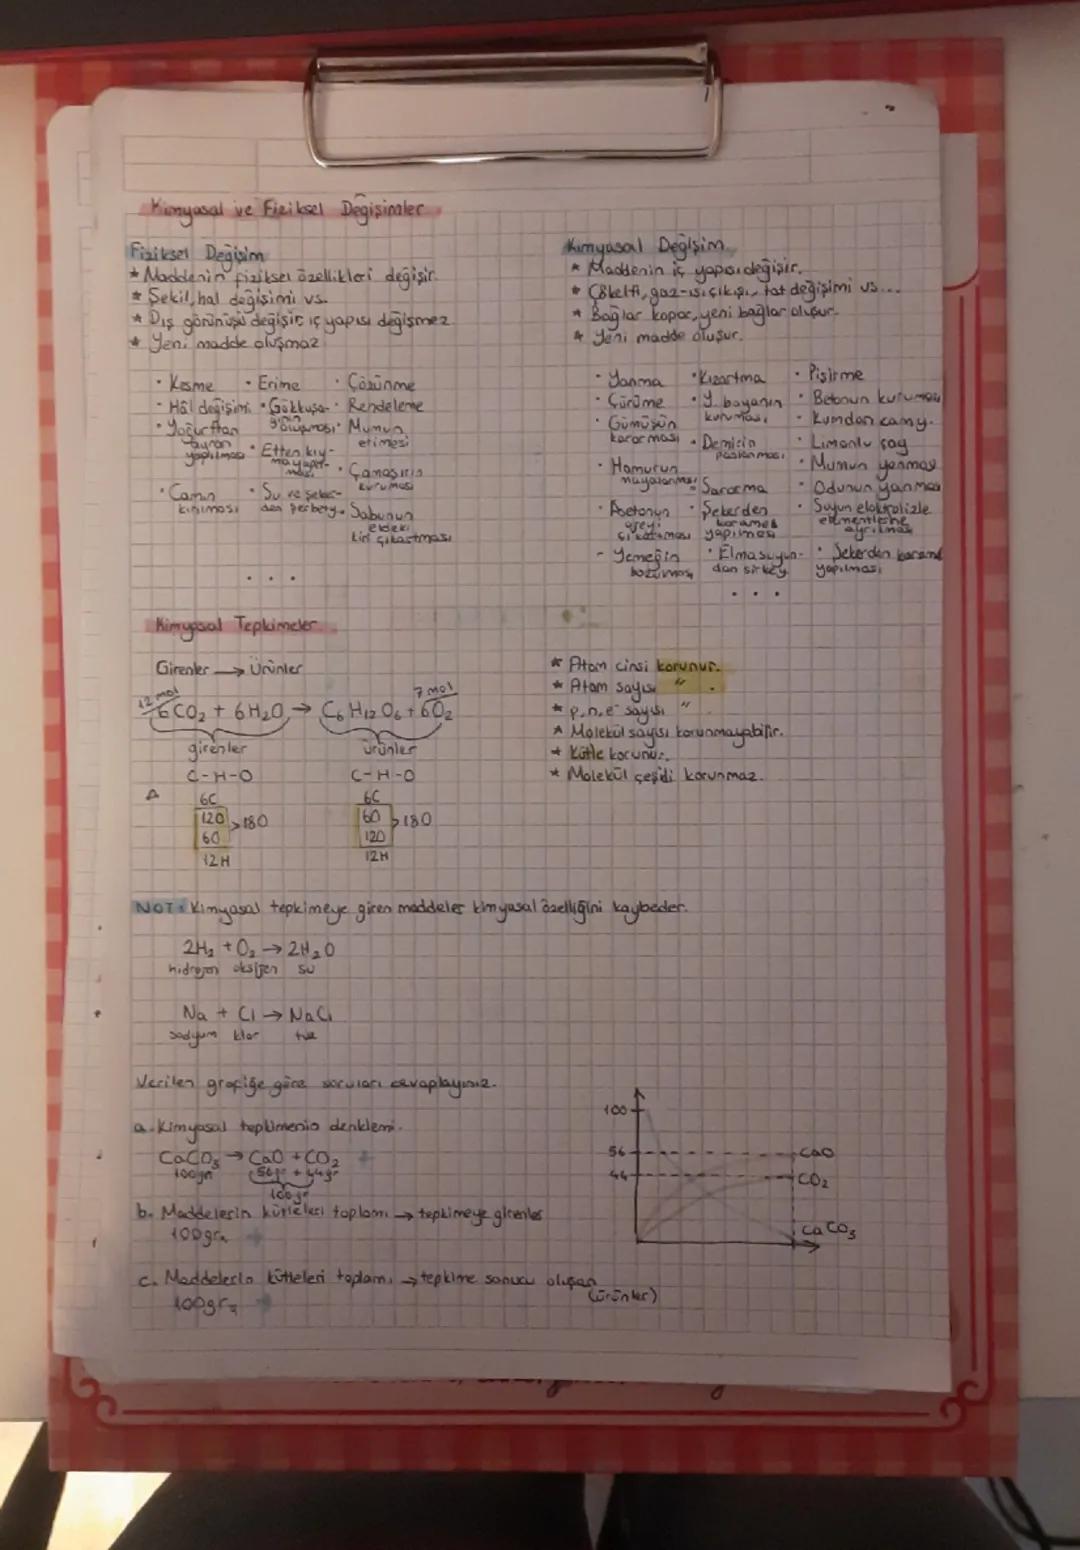 Kimyasal ve Fiziksel Değişimler
Fiziksel Değişim
* Maddenin fiziksel özellikleri değişir.
* Şekil, hal değişimi vs.
* Dış görünüşü değişir iç yapısı değişmez
* Yeni madde oluşmaz
· Kesme · Erime · Çözünme
· Hâl değişimi · Gökkuşağının oluşması · Rendeleme
· Yoğurttan ayran yapılması · Etten kıyma yapılması · Mumun erimesi
· Çamaşırın kuruması
· Camın kırılması · Su ve şekerden şerbet y. · Sabunun eldeki kiri çıkartması
. . .
Kimyasal Değişim
* Maddenin iç yapısı değişir.
* Çökelti, gaz-ısı çıkışı, tat değişimi vs...
* Bağlar kopar, yeni bağlar oluşur.
* Yeni madde oluşur.
· Yanma · Kızartma · Pişirme
· Çürüme · Y. boyanın kuruması · Betonun kuruması
· Gümüşün kararması · Demirin paslanması · Kumdan cam y.
· Limonlu çay
· Hamurun mayalanması · Sararma · Mumun yanması
· Odunun yanması
· Asetonun ojeyi çıkarması · Şekerden karamel yapılması · Suyun elektrolizle elementlerine ayrılması
- Yemeğin bozulması · Elma suyundan sirke y. · Şekerden karamel yapılması
. . .
Kimyasal Tepkimeler
Girenler → Ürünler
12 mol 7 mol
6CO₂ + 6H₂O → C₆H₁₂O₆ + 6O₂
girenler ürünler
C-H-O C-H-O
6C 6C
12O 6O
>18O >18O
6O 12O
12H 12H
* Atom cinsi korunur.
* Atom sayısı " .
* p,n,e⁻ sayısı "
* Molekül sayısı korunmayabilir.
* Kütle korunur.
* Molekül çeşidi korunmaz.
NOT: Kimyasal tepkimeye giren maddeler kimyasal özelliğini kaybeder.
2H₂ + O₂ → 2H₂O
hidrojen oksijen su
Na + Cl → NaCl
sodyum klor tuz
Verilen grafiğe göre soruları cevaplayınız.
a. Kimyasal tepkimenin denklemi.
CaCO₃ → CaO + CO₂
100gr 56gr + 44gr
100gr
b. Maddelerin kütleleri toplamı → tepkimeye girenler
100gr
c. Maddelerin kütleleri toplamı → tepkime sonucu oluşan
(ürünler)
100gr
100
56
44
CaO
CO₂
CaCO₃